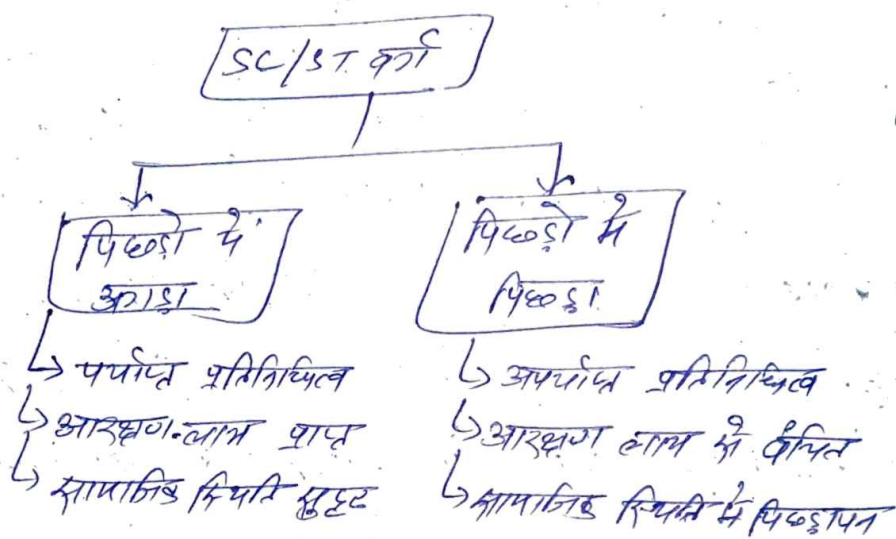 SC/ST वर्ग
पिछड़ो में
अगड़ा
पर्याप्त प्रतिनिधित्व
आरक्षण-लाभ प्राप्त
सामाजिक स्थिति सुदृढ
पिछड़ो में
पिछड़ा
अपर्याप्त प्रतिनिधित्व
आरक्षण लाभ से वंचित
सामाजिक स्थिति में पिछड़ापन